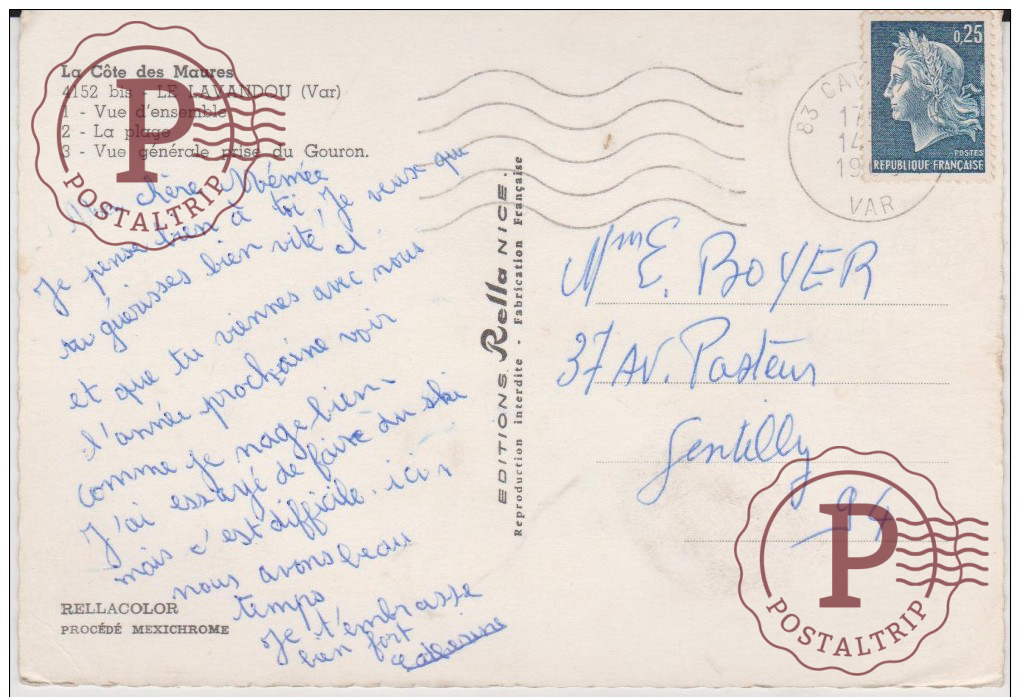 La Côte des Maures
4152 bis - LE LAVANDOU (Var)
1 - Vue d'ensemble
2 - La plage
3 - Vue générale prise du Gouron.
chère Mémée
Je pense bien à toi Je veux que
tu guérisses bien vite et
et que tu viennes avec nous
l'année prochaine voir
comme je nage bien
J'ai essayé de faire du ski
mais c'est difficile. ici
nous avons beau
temps
Je t'embrasse
bien fort
Catherine
RELLACOLOR
PROCÉDÉ MEXICHROME
EDITIONS Rella NICE.
Reproduction interdite - Fabrication Française
0,25
POSTES
REPUBLIQUE FRANÇAISE
83 CAV
17
14
19
VAR
Mme E. BOYER
37 AV. Pasteur
Gentilly
94
P
POSTALTRIP
P
POSTALTRIP